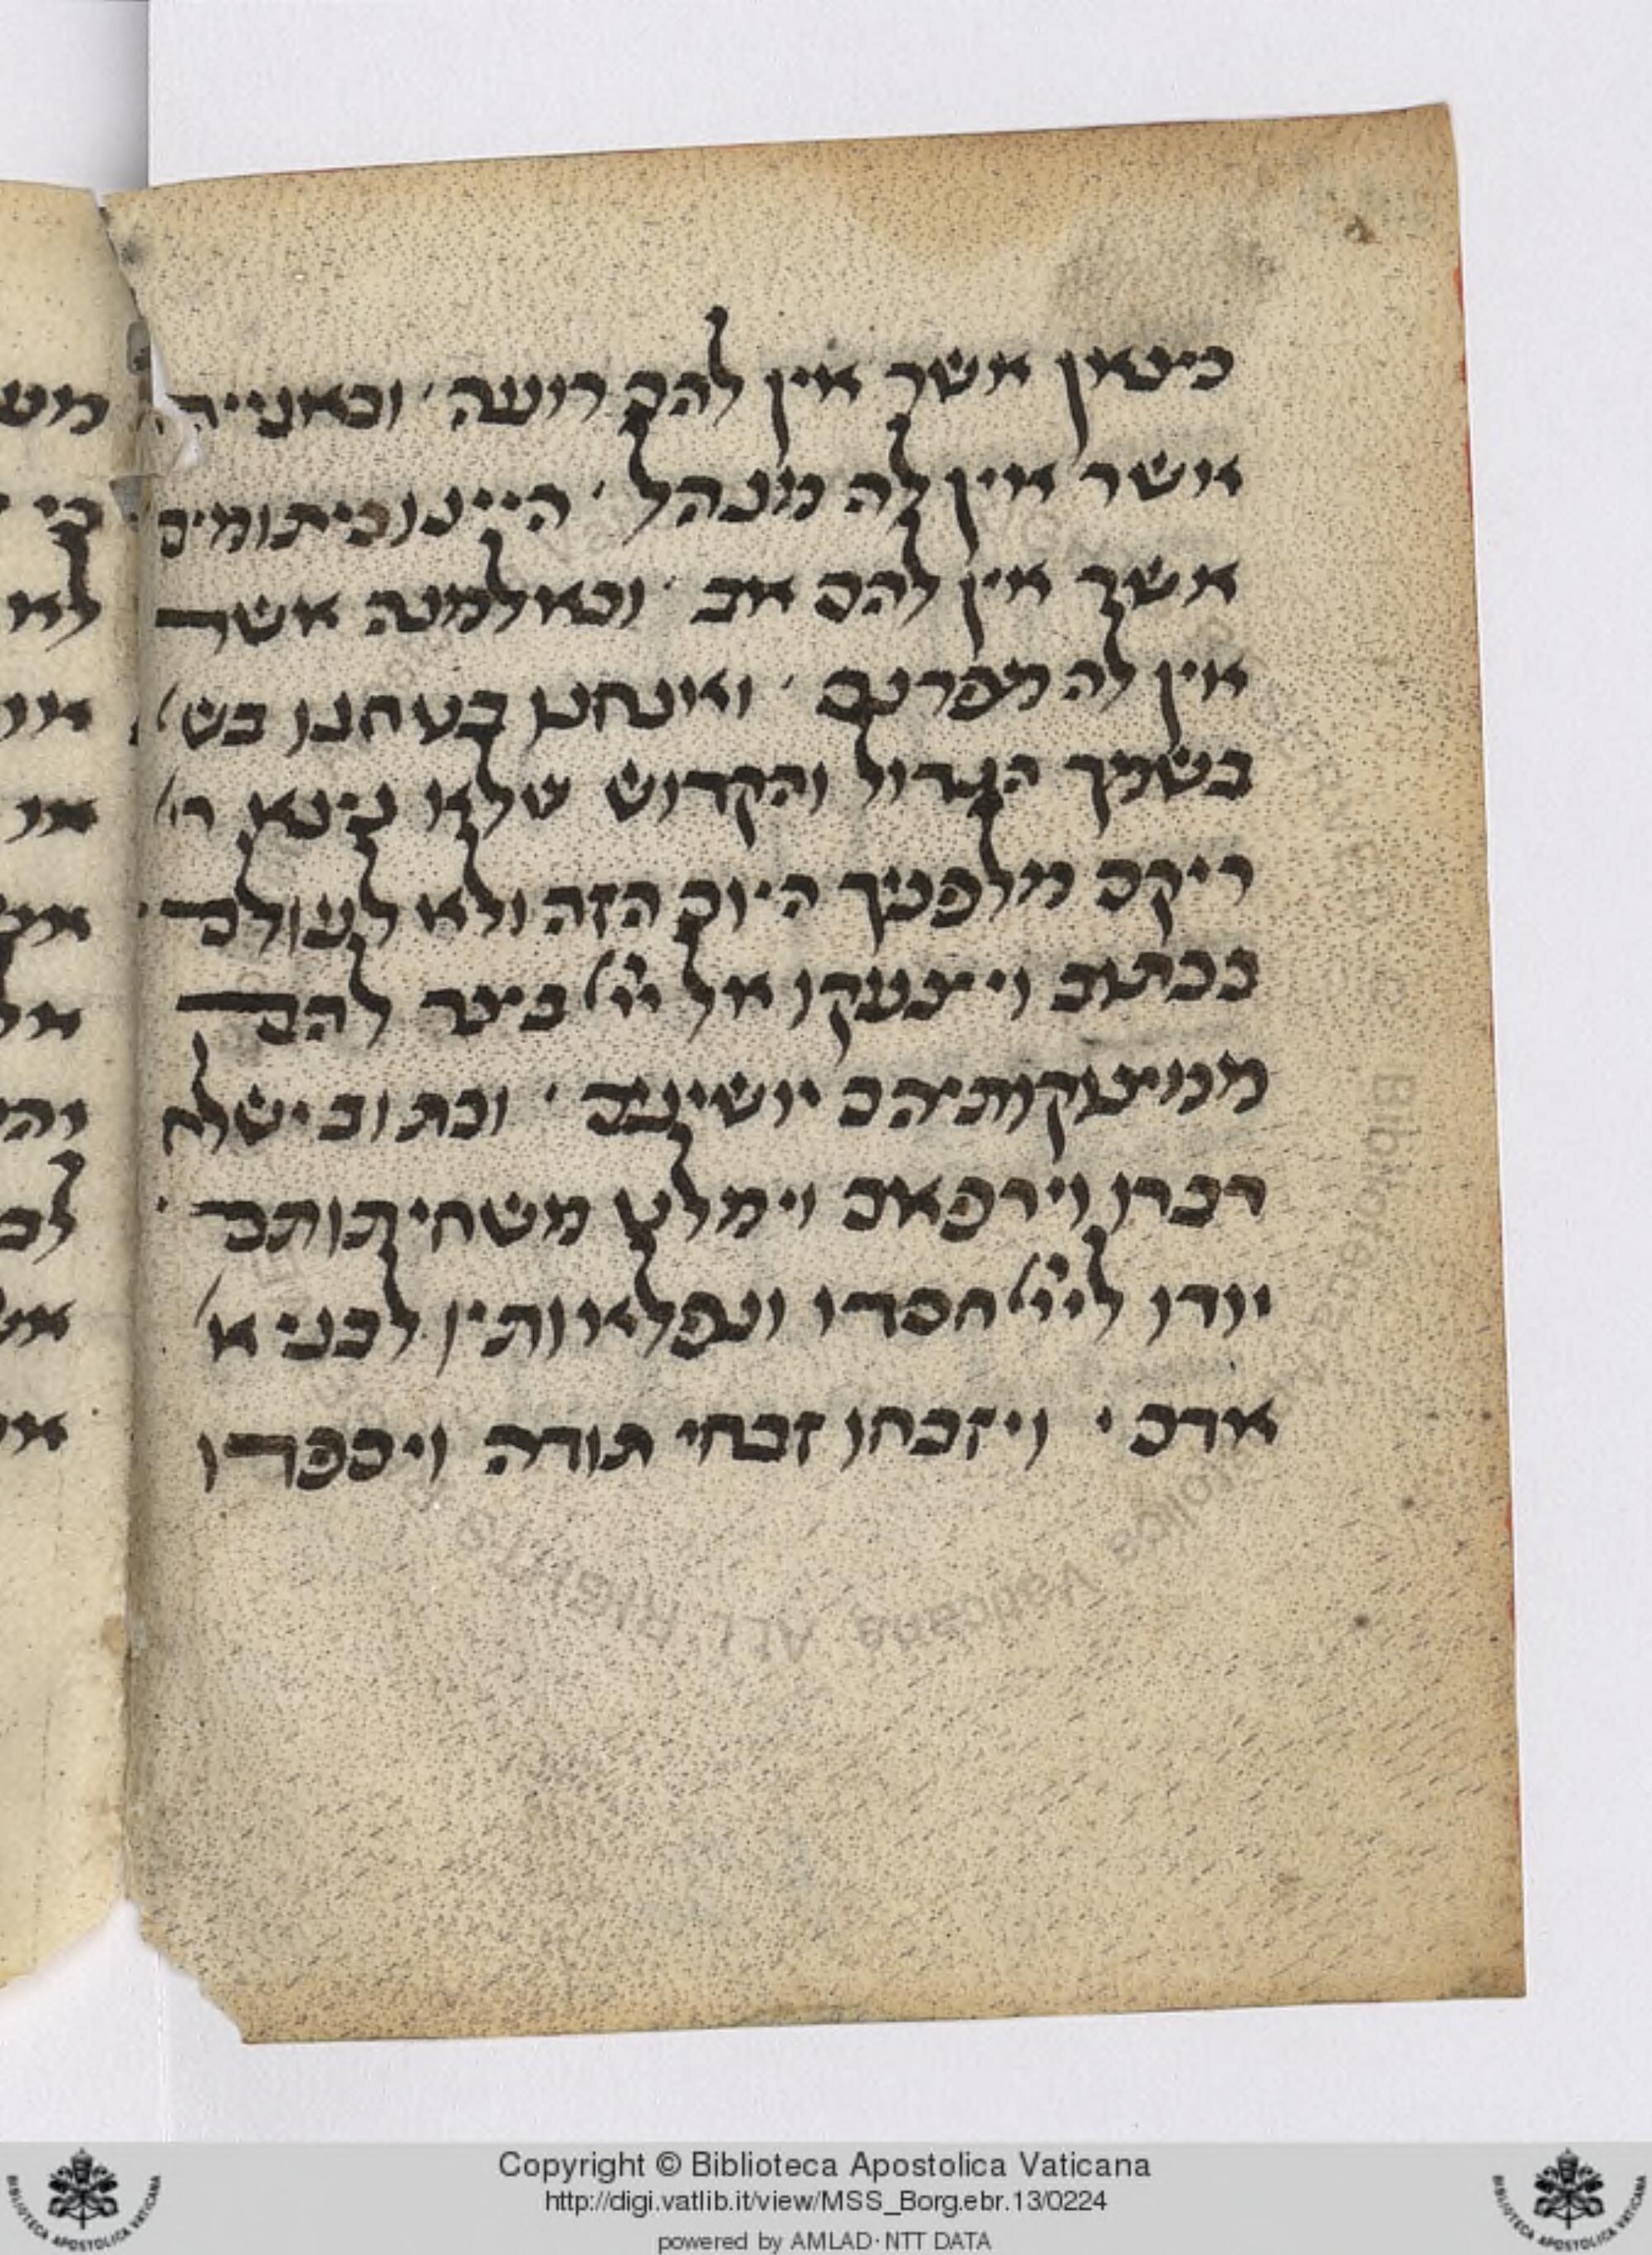 כצאן אשר אין להם רועה ׳ וכאניה
אשר אין לה מנהל ׳ היינו כיתומים
אשר אין להם אב ׳ וכאלמנה אשר
אין לה מפרנס ׳ ואנחנו בטחנו בש׳
בשמך הגדול והקדוש שלא נצא ר׳
ריקם מלפניך היום הזה ולא לעולם ׳
ככתוב ויצעקו אל ייי בצר להם
ממצוקותיהם יושיעם ׳ וכתוב ישלח
דברו וירפאם וימלט משחיתותם ׳
יודו לייי חסדו ונפלאותיו לבני א׳
אדם ׳ ויזבחו זבחי תודה ויספרו
Copyright © Biblioteca Apostolica Vaticana
http://digi.vatlib.it/view/MSS_Borg.ebr.13/0224
powered by AMLAD·NTT DATA